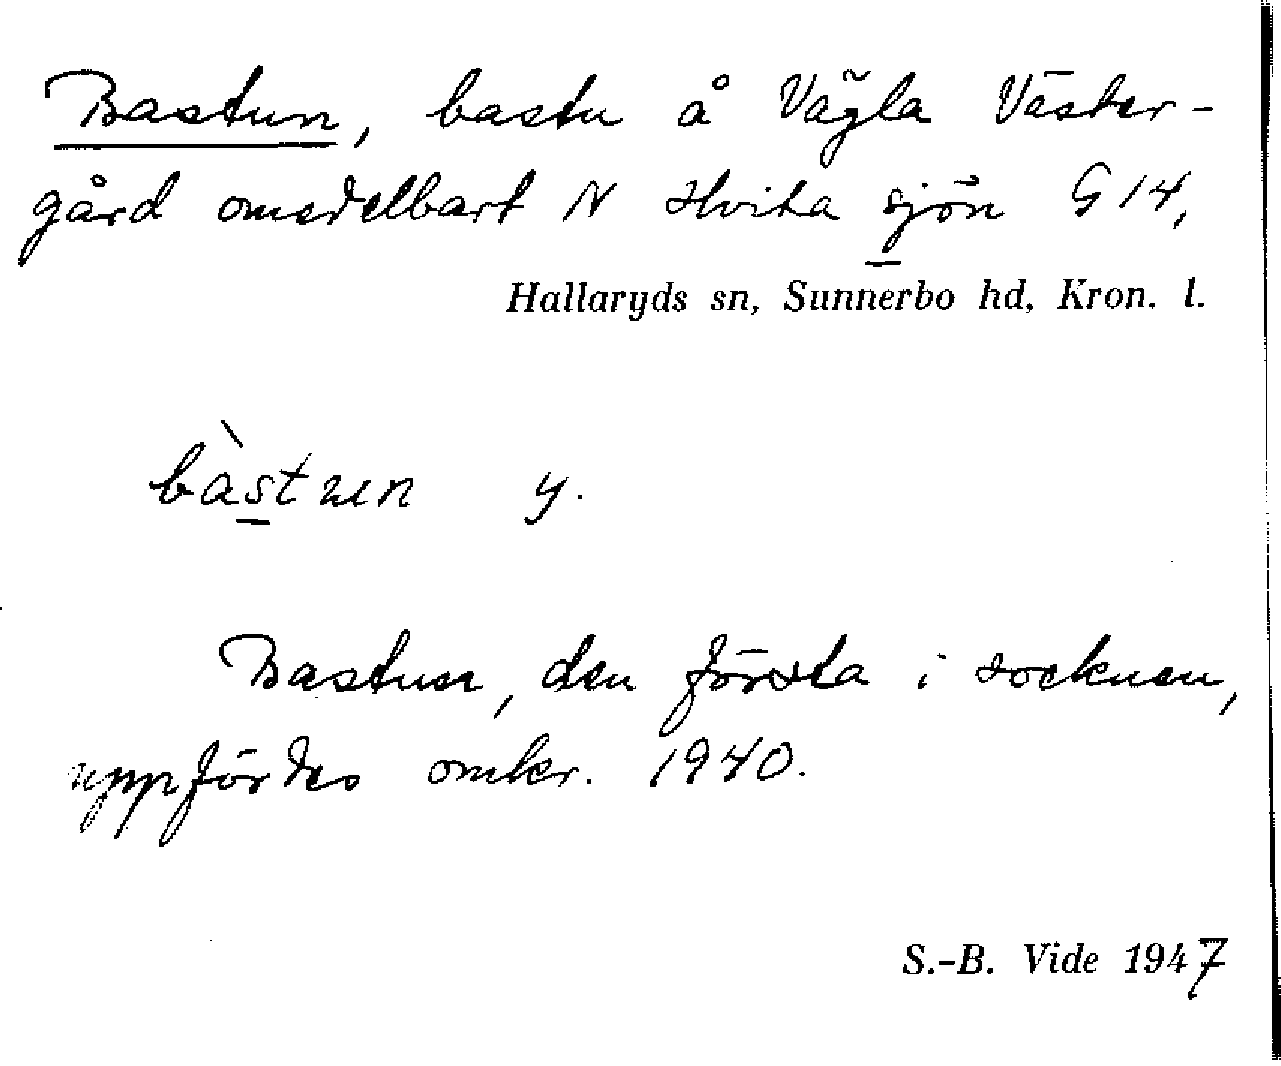 Bastun, bastu å Vägla Väster-
gård omedelbart N Hvita sjön G 14,
Hallaryds sn, Sunnerbo hd, Kron. l.
bàstun y.
Bastun, den första i socknen,
uppfördes omkr. 1940.
S.-B. Vide 1947